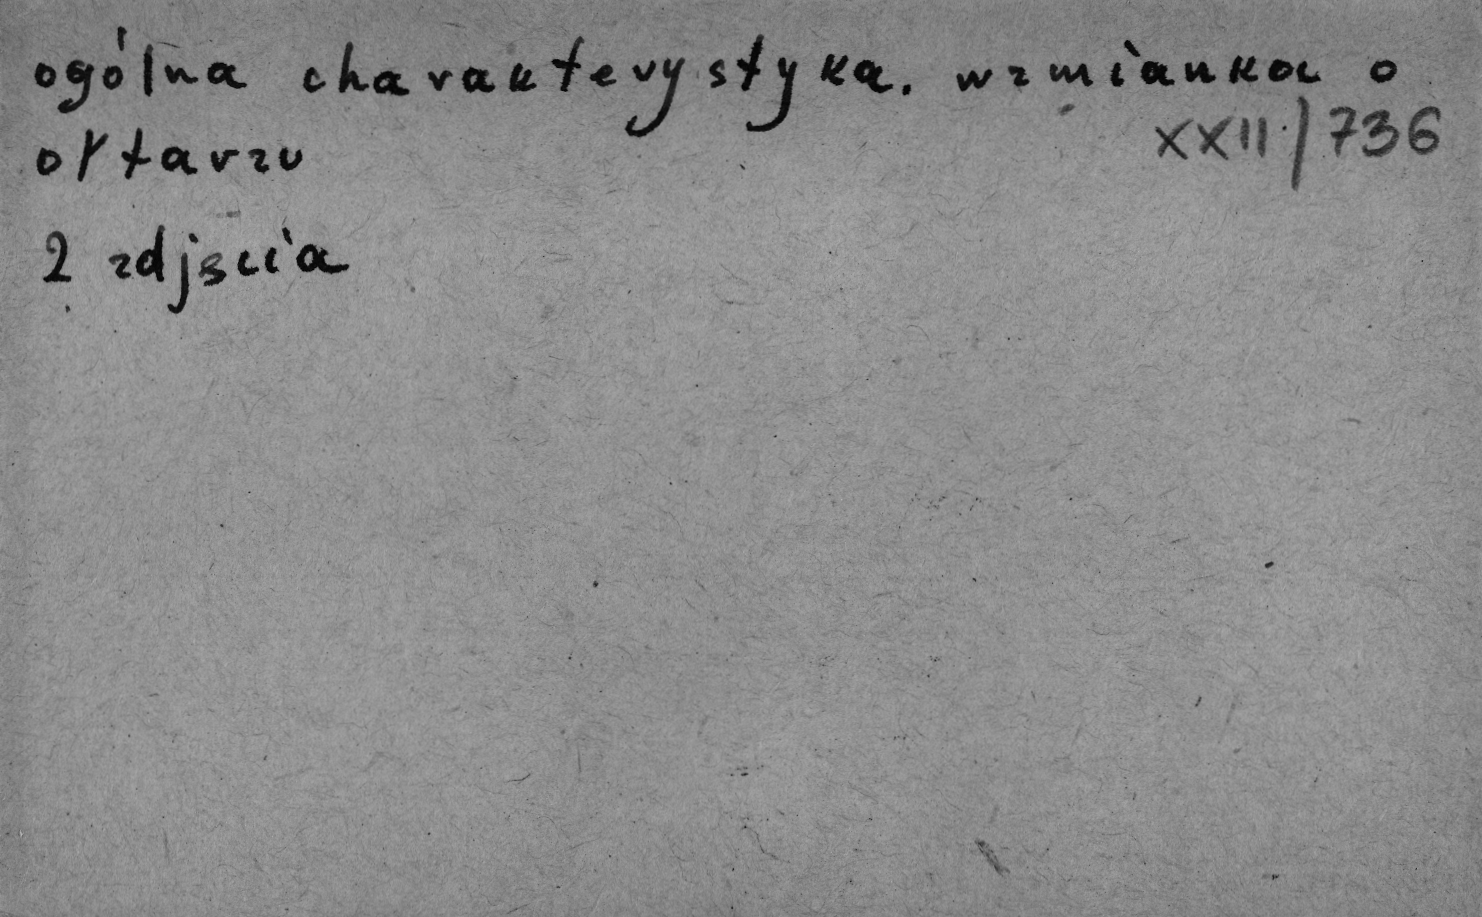 ogólna charakterystyka. wzmianka o
ołtarzu
XXII/736
2 zdjęcia